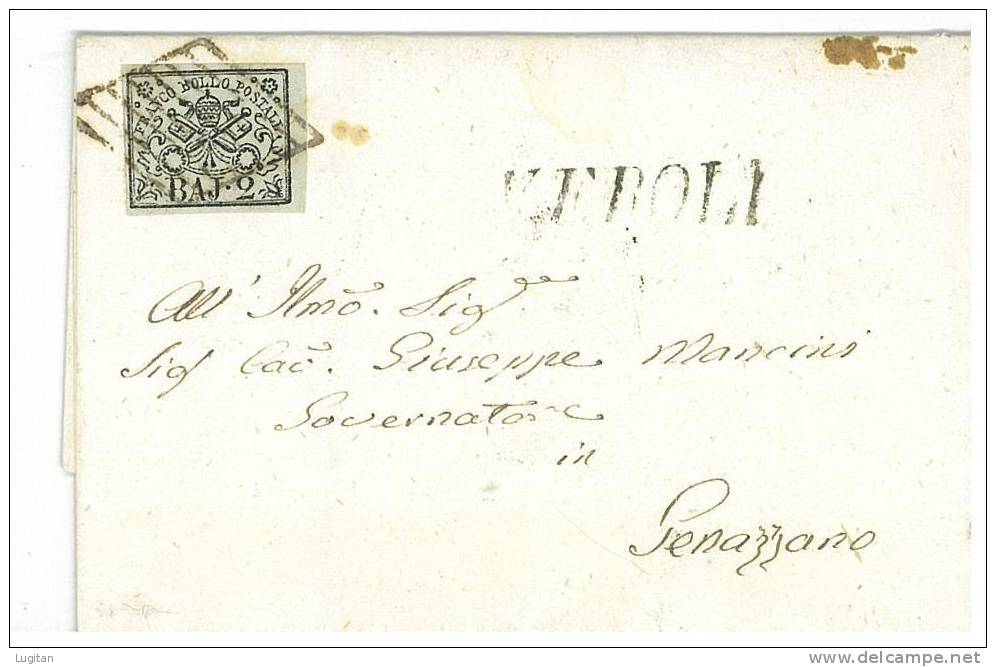 FRANCO BOLLO POSTALE
BAJ·2
VEROLI
All' Ilmo. Sig.
Sig Cav. Giuseppe Mancini
Governatore
in
Genazzano
Lugitan
delcampe.net